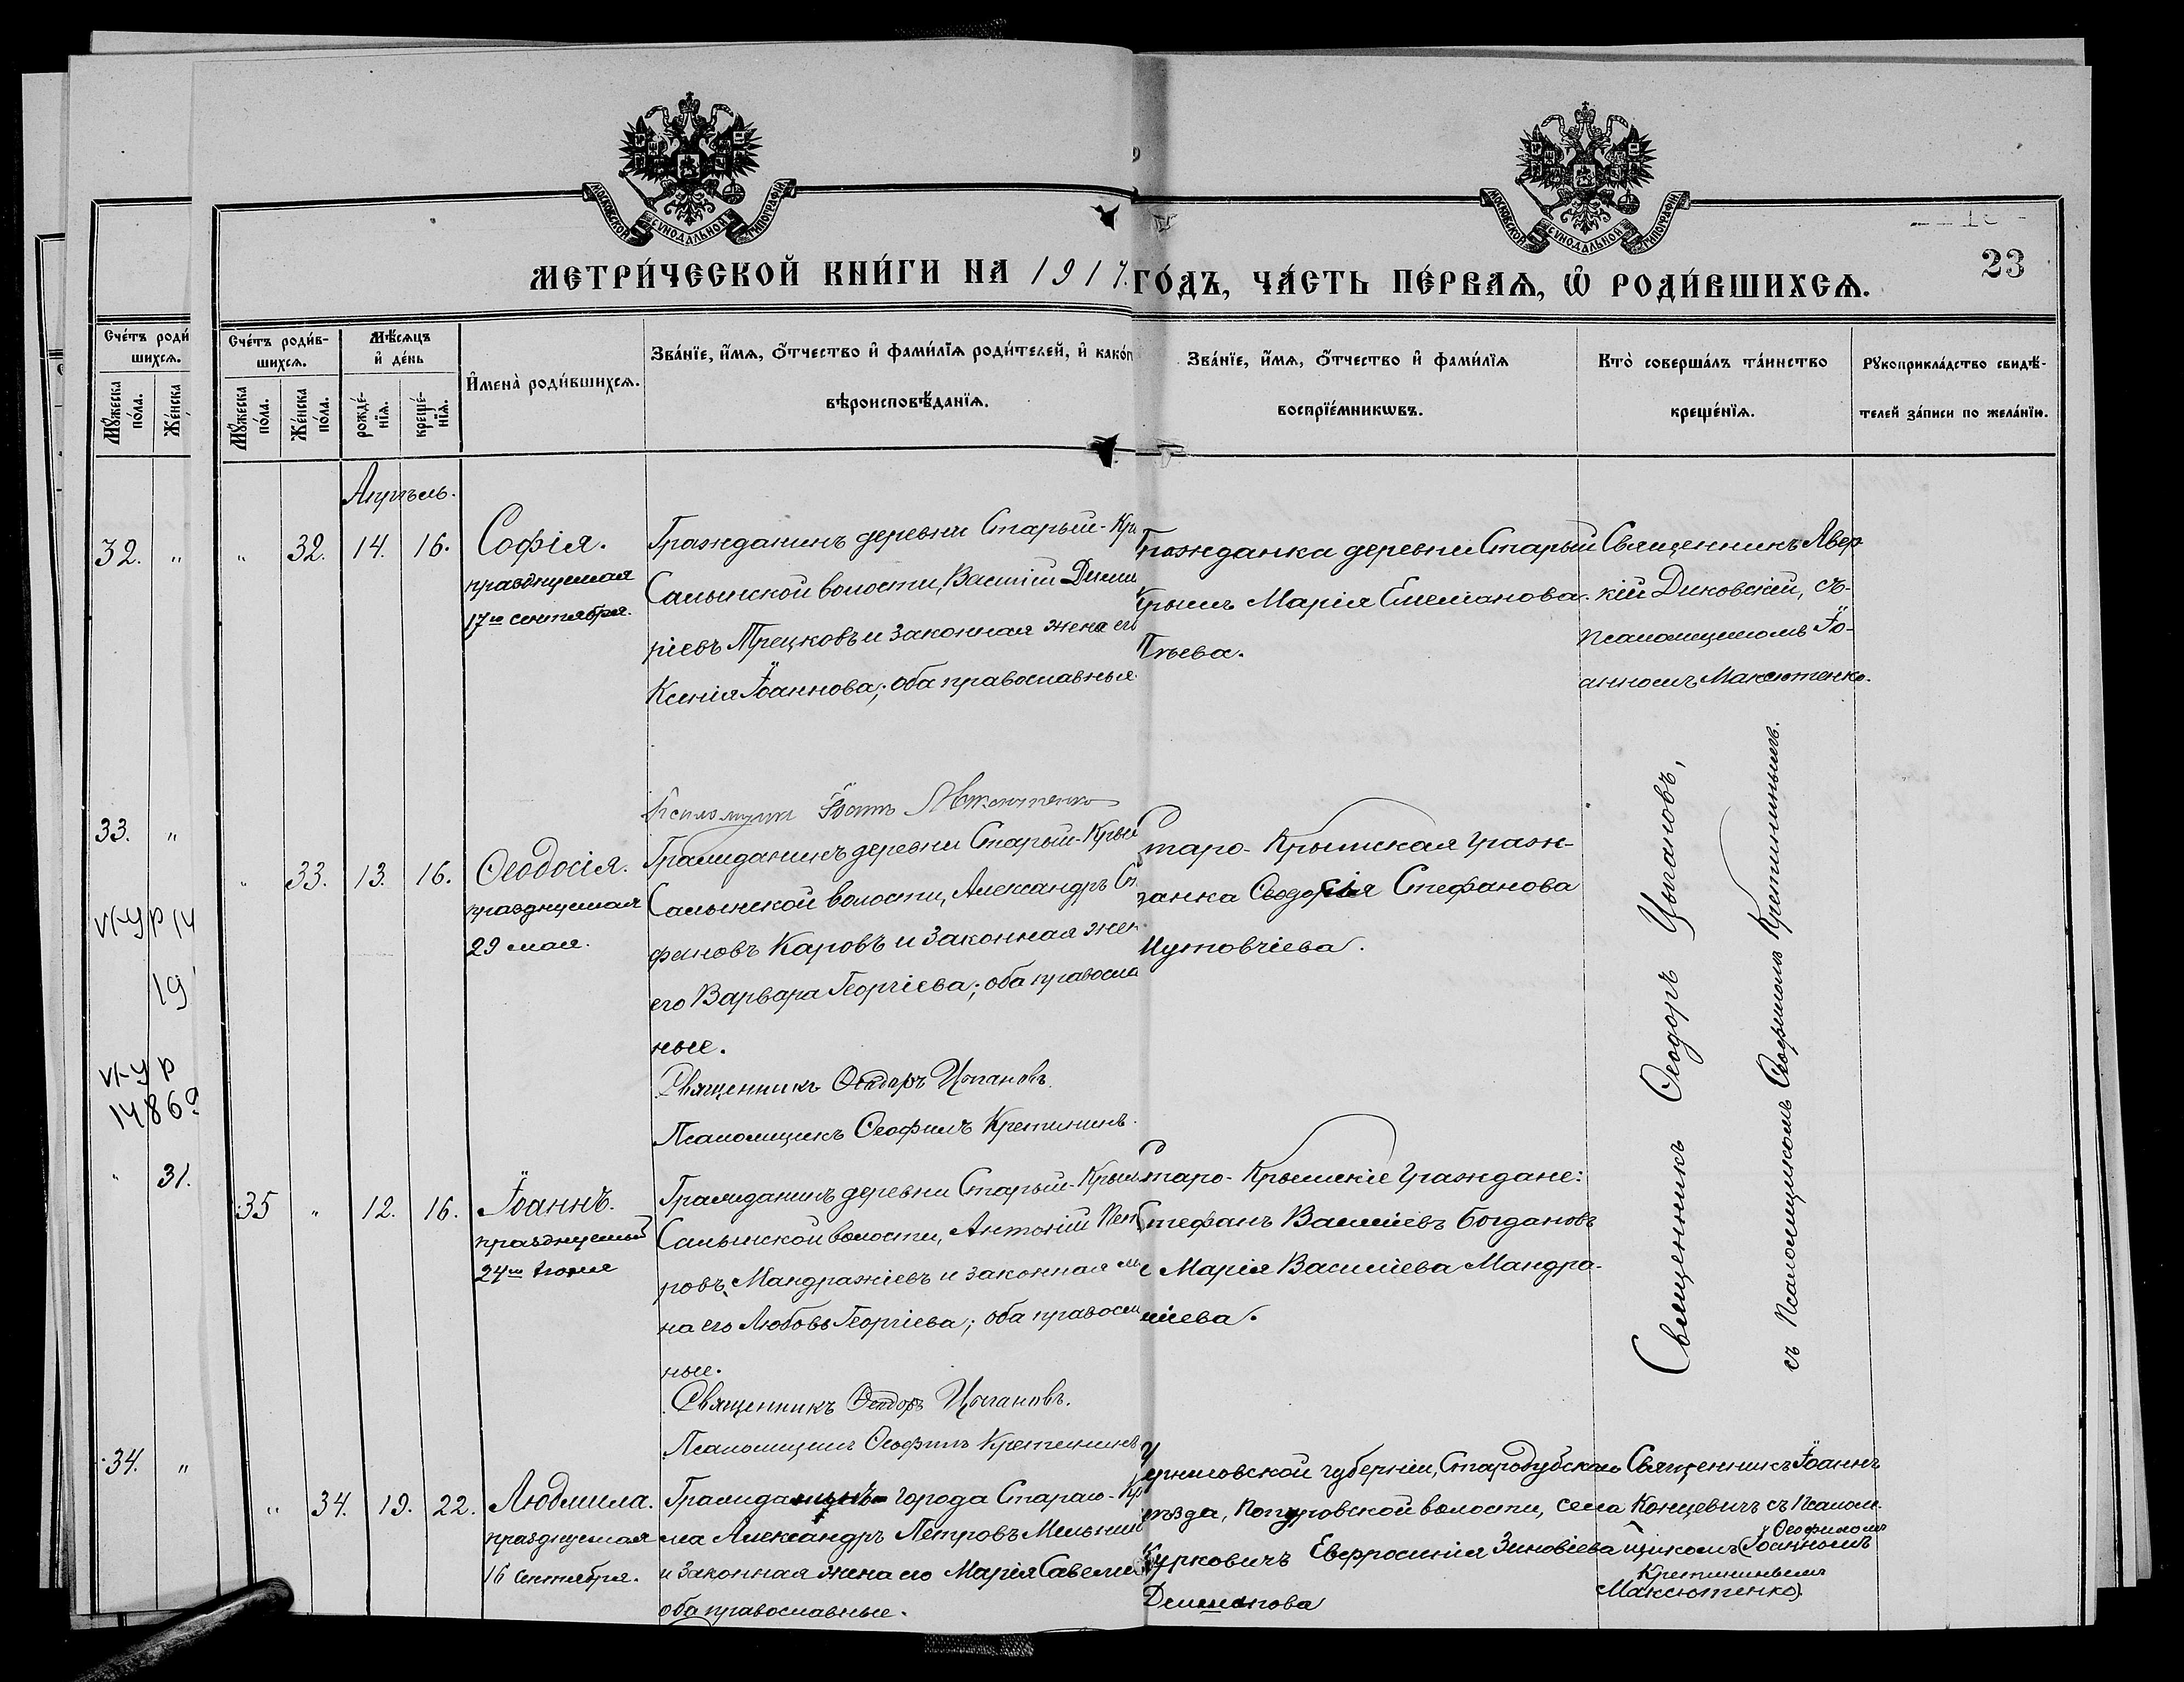 МОСКОВСКОЙ СѴНОДАЛЬНОЙ ТИПОГРАФІИ
МОСКОВСКОЙ СѴНОДАЛЬНОЙ ТИПОГРАФІИ
23
МЕТРИ́ЧЕСКОЙ КНИ́ГИ НА 1917. ГО́ДЪ, ЧА́СТЬ ПЕ́РВАѦ, Ѿ РОДИ́ВШИХСѦ.
Сче́тъ роди́
шихсѧ.
Мꙋ́жеска по́ла.
Же́нска
Сче́тъ роди́в-
шихсѧ.
Мꙋ́жеска по́ла.
Же́нска по́ла.
Мѣ́сѧцъ
и҆ де́нь
рожде́-нїѧ.
креще́-нїѧ.
И҆мена̀ роди́вшихсѧ.
Зва́нїе, и҆́мѧ, ѻ҆́тчество и҆ фами́лїѧ роди́телей, и҆ како́г
вѣроисповѣ́данїѧ.
Зва́нїе, и҆́мѧ, ѻ҆́тчество и҆ фами́лїѧ
воспрїе́мникѡвъ.
Кто̀ соверша́лъ та́инство
креще́нїѧ.
Рꙋкоприкла́дство свидѣ́-
телей за́писи по жела́нїю.
32. "
33. "
31.
34. "
Апрѣль.
" 32. 14. 16.
Софія.
празднуемая
17го сентября.
Гражданинъ деревни Старый-Кры
Салынской волости, Василій Дими
ріевъ Трецковъ и законная жена его
Ксенія Іоаннова; оба православные
Гражданка деревни Старый
Крымъ Марія Емеліанова
Пѣева.
Священникъ Авер-
кій Диковскій, съ
псаломщикомъ Іо-
анномъ Максютенко.
Псаломщикъ Іоаннъ Максютенко
" 33. 13. 16.
Ѳеодосія.
празднуемая
29 мая.
Гражданинъ деревни Старый-Крым
Салынской волости, Александръ Ст
фановъ Каровъ и законная жен
его Варвара Георгіева; оба правосла
ные.
Священникъ Ѳеодоръ Цыгановъ.
Псаломщикъ Ѳеофилъ Кретининъ.
Старо-Крымская граж-
данка Ѳеодосія Стефанова
Священникъ Ѳеодоръ Цыгановъ,
съ псаломщикомъ Ѳеофиломъ Кретининымъ.
35 " 12. 16.
Іоаннъ.
празднуемый
24го Іюня
Гражданинъ деревни Старый-Крым
Салынской волости, Антоній Пет
ровъ Мандражіевъ и законная
на его Любовь Георгіева; оба правосла
ные.
Священникъ Ѳеодоръ Цыгановъ.
Псаломщикъ Ѳеофилъ Кретининъ
Старо-Крымскіе граждане:
Стефанъ Василіевъ Богдановъ
и Марія Василіева Мандра-
жіева.
" 34. 19. 22.
Людмила.
празднуемая
16 сентября.
Гражданинъ города Стараго-Кр
ма Александръ Петровъ Мельник
и законная жена его Марія Савелі
оба православные.
Черниговской губерніи, Стародубскаго
уѣзда, Попуровской волости, села
Курковичъ Евфросинія Зиновіева
Священникъ Іоаннъ
Концевичъ съ псалом-
щикомъ (Іоанномъ Ѳеофиломъ
Кретининымъ
Максютенко)